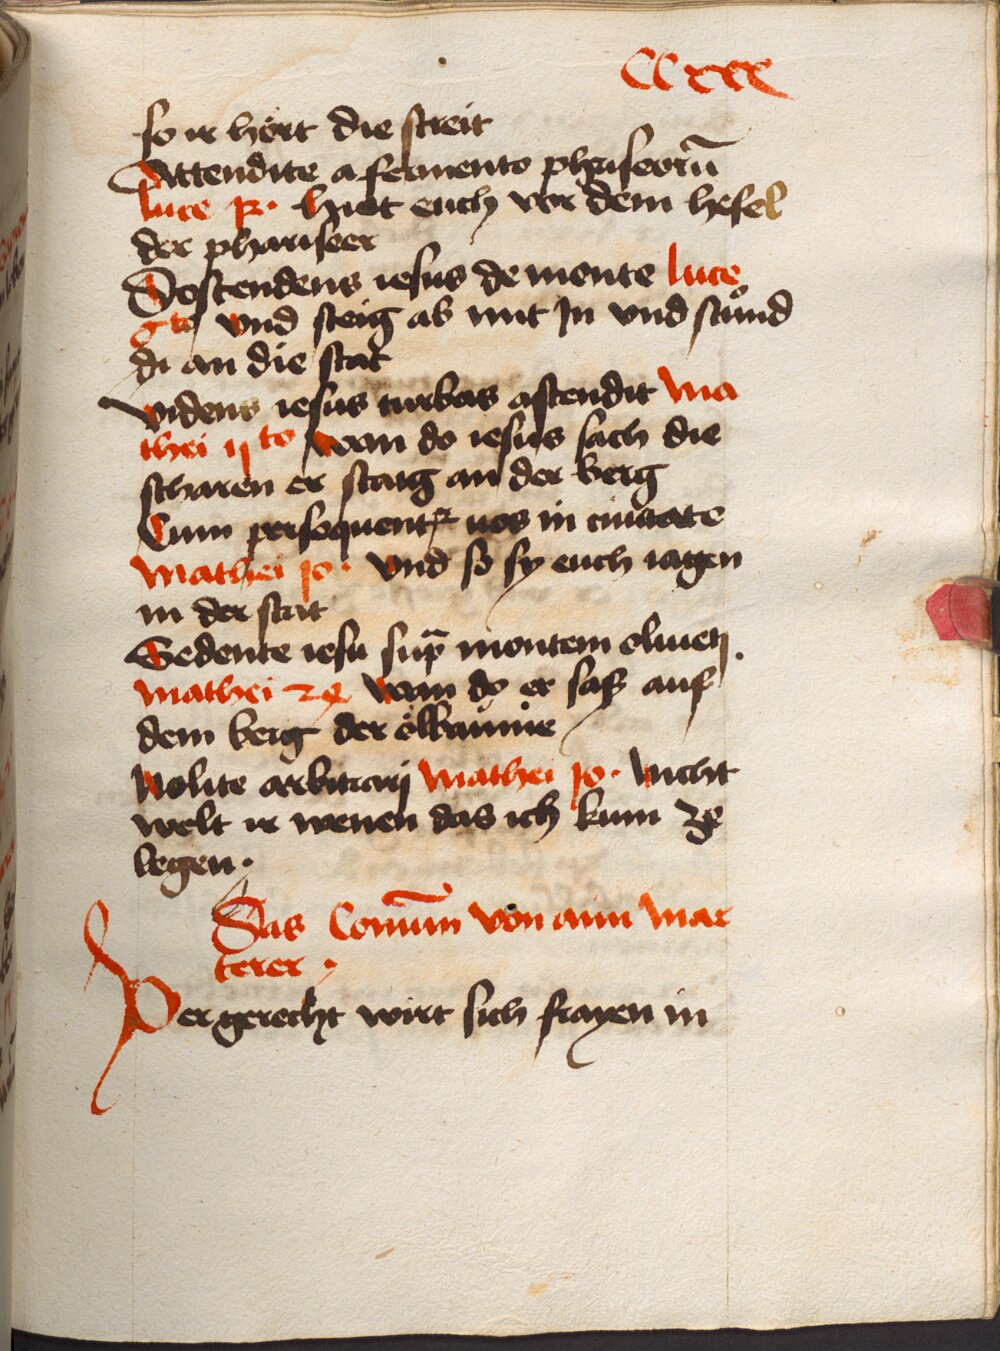 CCxxx
so ir hört die streit
Attendite a fermento phariseorū
luce xii. hiet euch vor dem hefel
der phariseer
Descendens iesus de monte luce
6to vnd steig ab mit In vnd stůnd
di an die stat
videns iesus turbas ascendit Ma
thei vto wan do iesus sach die
scharen er staig an der berg
Cum persequentr vos in ciuitate
Mathei xo. vnd so sy euch iagen
in der stat
Sedente iesu sup montem oliueti.
mathei 24 wan do er saß auf
dem berg der ölbaimer
Nolite arbitrarj Mathei xo. Nicht
welt ir wenen das ich kum ze
legen.
Das Comūm von aim Mar
terer.
Der gerecht wirt sich frayen in